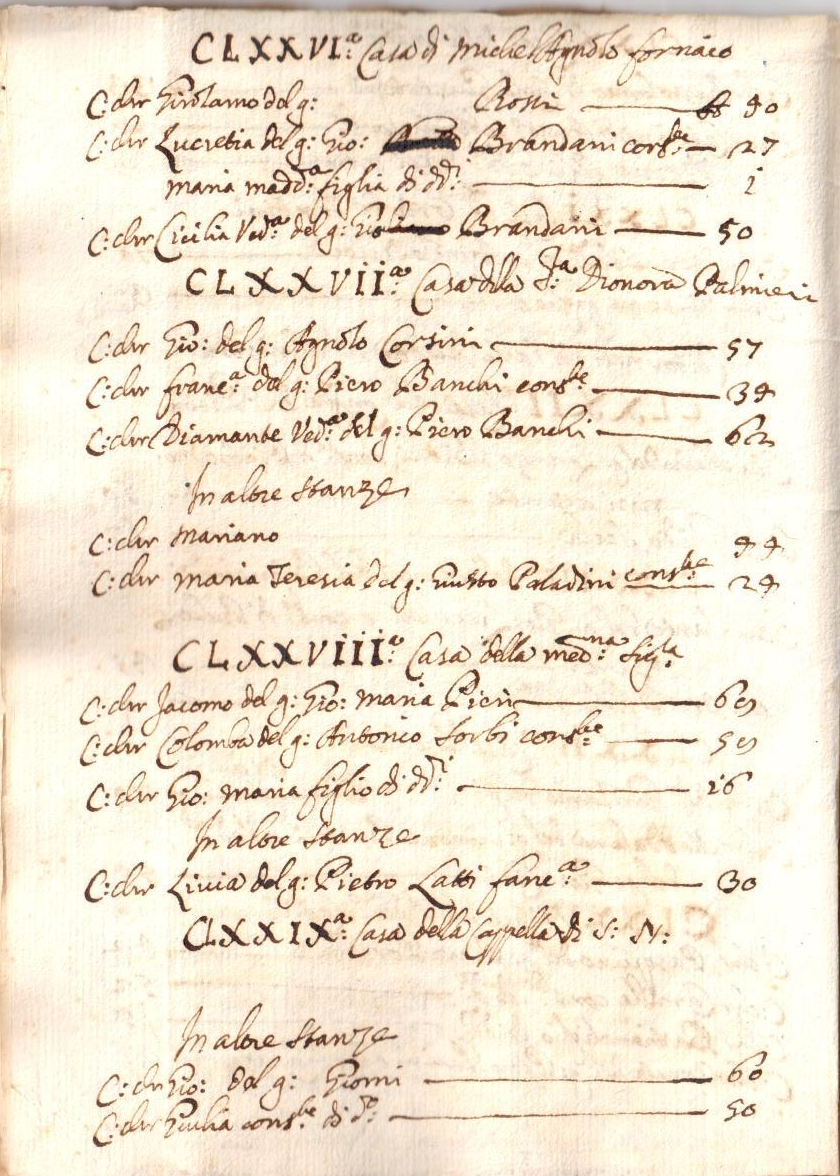 CLXXVI.ª Casa di Michel Agnolo fornaio
C: chr Girolamo del g: Rossi 40
C: chr Lucretia del g: Gio: Brandani cons.te 27
maria madd.ª figlia di dd.i 1
C: chr Cicilia Ved.ª del g: Brandani 50
CLXXVII.ª Casa dlla S.ra Dionora Palmieri
C: chr Gio: del g: Agnolo Corsini 57
C: chr franc.ª del g: Piero Banchi cons.te 34
C: chr Diamante Ved.ª del g: Piero Banchi 62
In altre stanze
C: chr Mariano 44
C: chr maria Teresia del g: Giusto Paladini cons.te 24
CLXXVIII.ª Casa della med.ma Sig.ra
C: chr Jacomo del g: Gio: maria Pieri 69
C: chr Colomba del g: Antonio Sorbi cons.te 59
C: chr Gio: maria figlio di dd.i 16
In altre stanze
C: chr Livia del g: Pietro Latti 30
CLXXIX.ª Casa della Cappella di S: N:
In altre stanze
C: chr Gio: del g: Giomi 60
C: chr Giulia cons.te di d.o 50